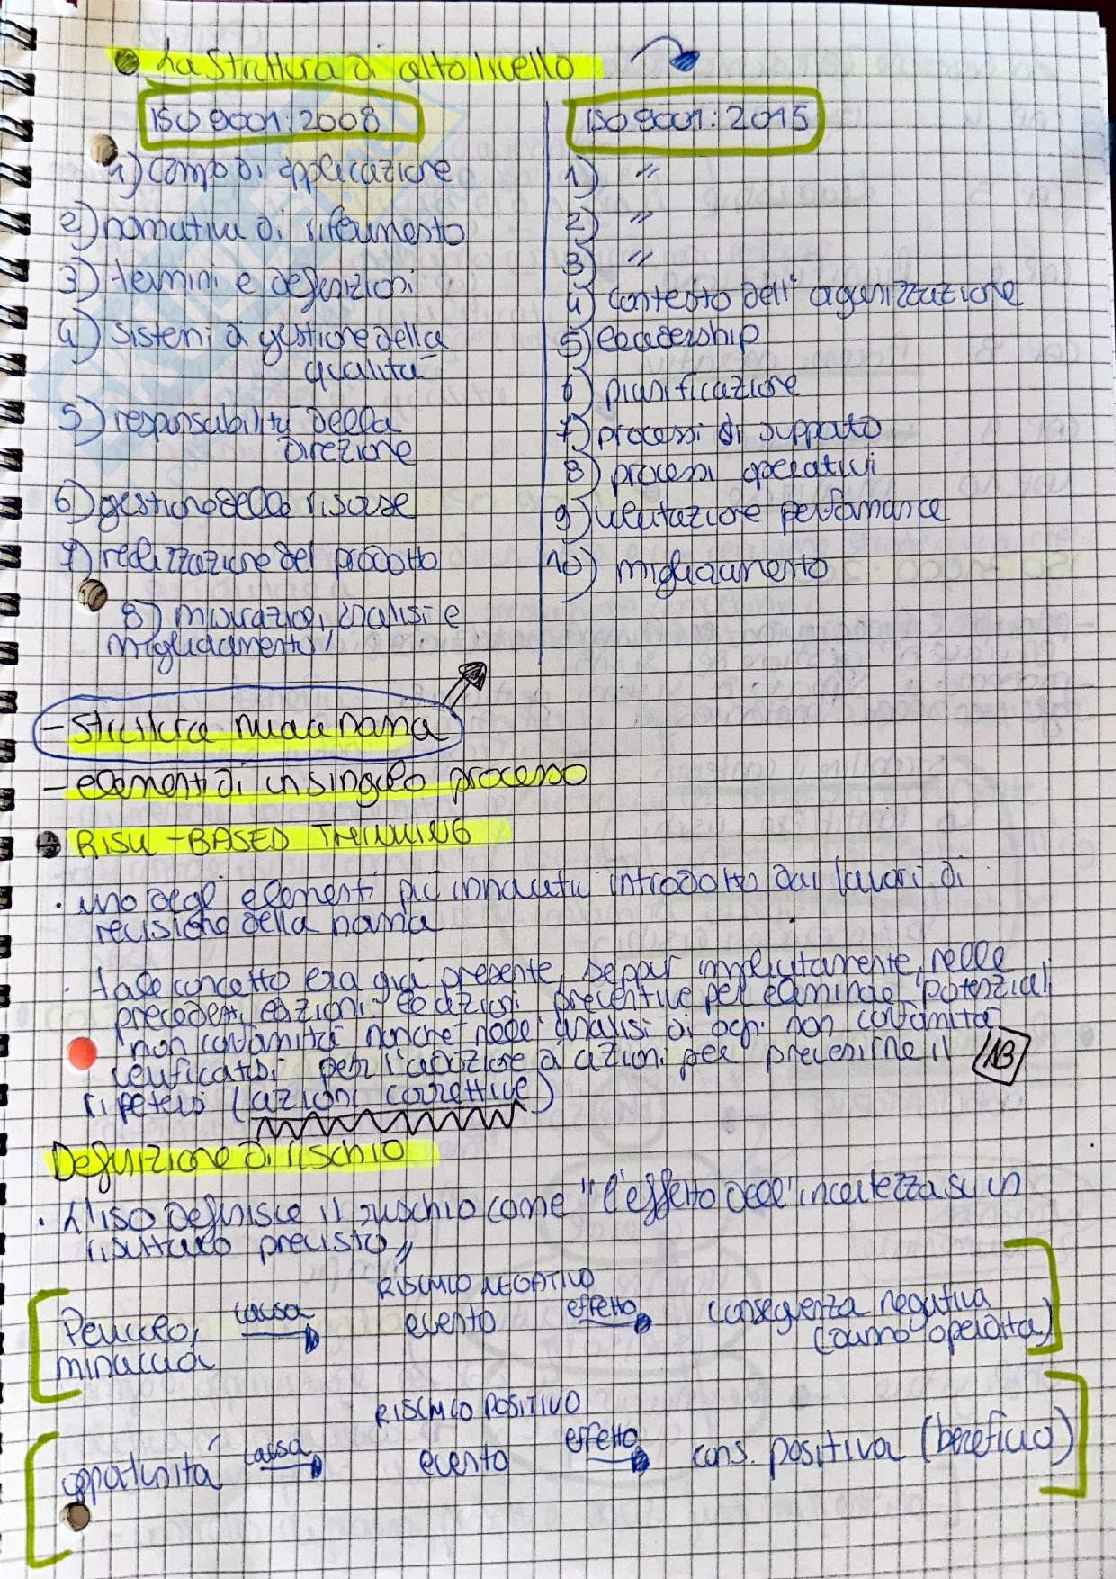 La struttura di alto livello
ISO 9001:2008
1) campo di applicazione
2) normativa di riferimento
3) termini e definizioni
4) sistemi di gestione della
qualità
5) responsability della
direzione
6) gestione delle risorse
7) realizzazione del prodotto
8) misurazioi, analisi e
migliadamento
ISO 9001:2015
1) "
2) "
3) "
4) contesto dell'organizzazione
5) leadership
6) pianificazione
7) processi di supporto
8) processi operativi
9) valutazione performance
10) migliaiamento
- struttura nuova norma
- elementi di un singolo processo
RISK-BASED THINKING
• uno degli elementi più innovativi introdotto dai lavori di
revisione della norma
• tale concetto era già presente, seppur implicitamente, nelle
precedenti edizioni: le azioni preventive per eliminare "potenziali
non conformità" nonché nelle analisi di ogni non conformità
verificatasi per l'adozione di azioni per prevenirne il
ripetersi (azioni correttive)
13
Definizione di rischio
• L'iso definisce il rischio come "l'effetto dell'incertezza su un
risultato previsto"
RISCHIO NEGATIVO
Pericolo, causa evento effetto conseguenza negativa
minaccia (danno o perdita)
RISCHIO POSITIVO
opportunità causa evento effetto cons. positiva (beneficio)